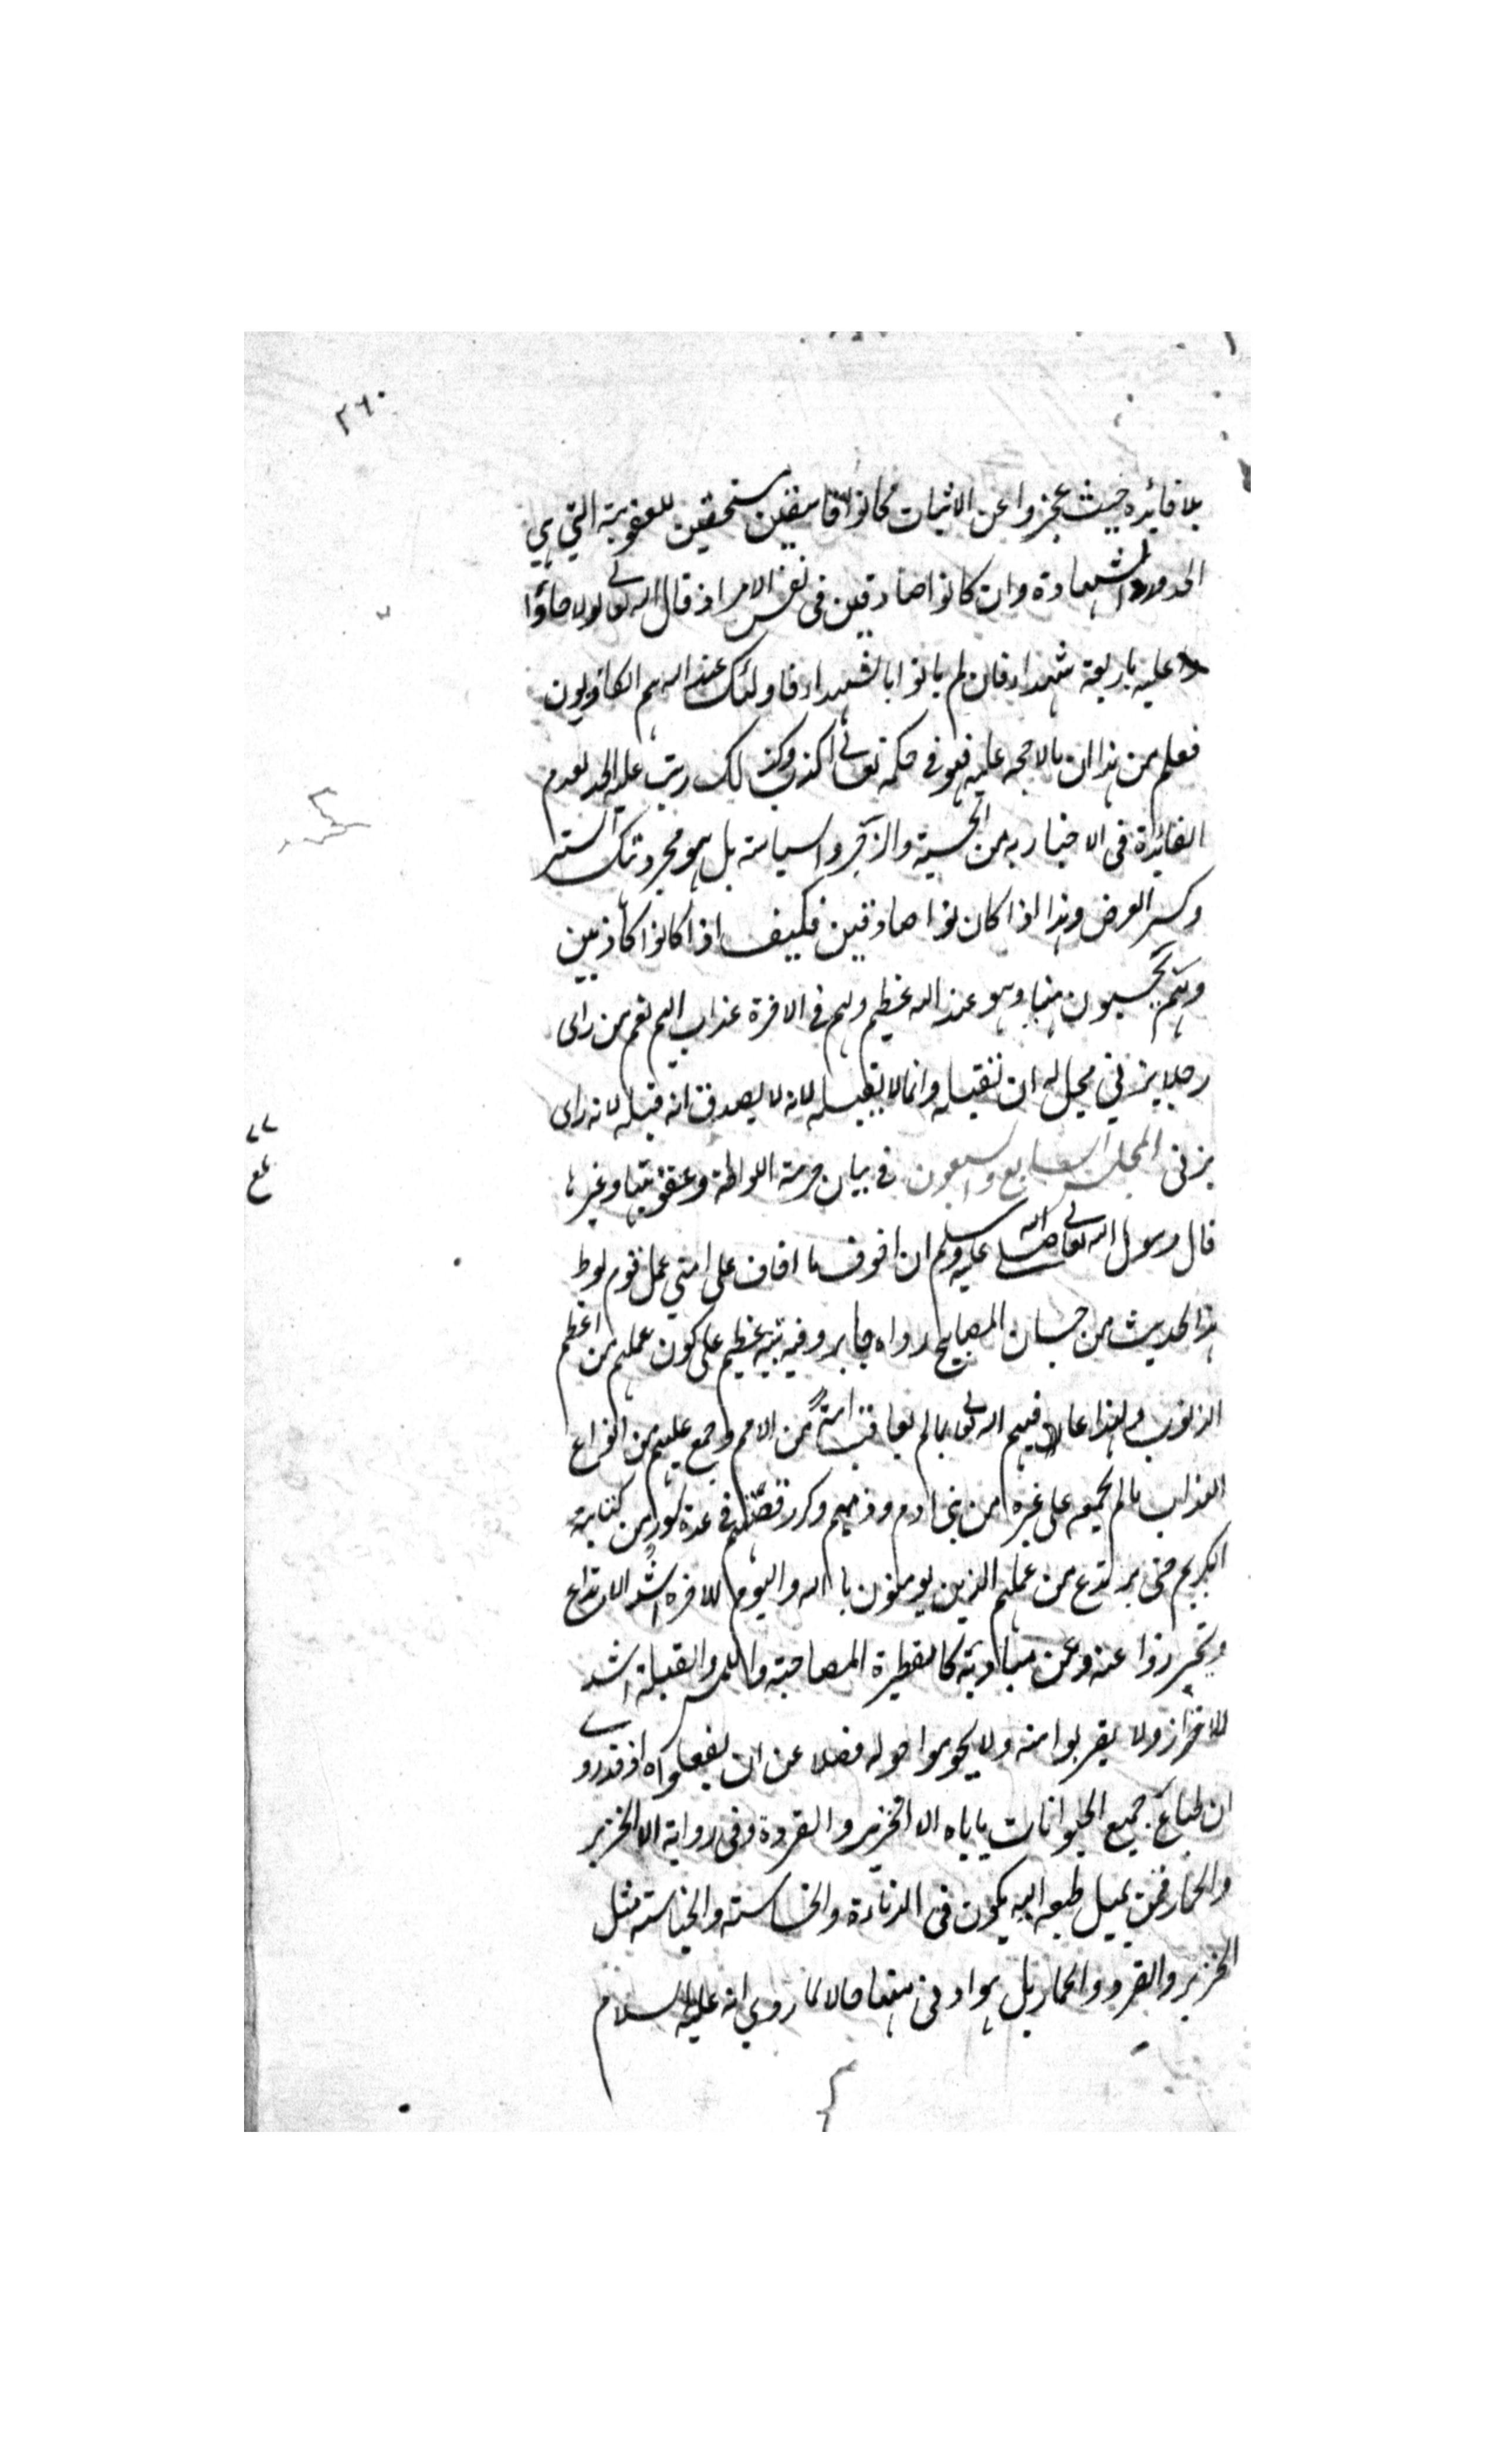 ٢٦٠
بلا فائدة حيث عجزوا عن الاثبات فكانوا فاسقين مستحقين للعقوبة التي هي
الحد ورد الشهادة وان كانوا صادقين في نفس الامر اذ قال الله تعالى لولا جاؤا
عليه باربعة شهداء فان لم ياتوا بالشهداء فاولئك عند الله هم الكاذبون
فعلم من هذا ان ما لا حجة عليه فهو في حكمه تعالى كذب وكذلك رتب عليه الحد لعدم
الفائدة في الاخبار به من الحسبة والزجر والسياسة بل هو مجرد هتك الستر
وكسر العرض وهذا اذا كان نوا صادقين فكيف اذا كانوا كاذبين
وهم يحسبون هينا وهو عند الله عظيم ولهم في الاخرة عذاب اليم نعم من راى
رجلا يزني يحل له ان يقتله وانما لا يقتله لانه لا يصدق انه قتله لانه راى
يزني المجلس السابع والسبعون في بيان حرمة اللواطة وعقوبتها وغيرها
٧٧
قال رسول الله تعالى صلى الله عليه وسلم ان اخوف ما اخاف على امتي عمل قوم لوط
هذا الحديث من حسان المصابيح رواه جابر وفيه تنبيه عظيم على كون عملهم من اعظم
الذنوب ولهذا عاقبهم الله تعالى بما لم يعاقب امة من الامم وجمع عليهم من انواع
العذاب ما لم يجمعه على غيرهم من بني ادم وذمهم وكرر قصتهم في عدة سور من كتابه
الكريم حتى يرتدع من عملهم الذين يومنون بالله واليوم الاخرة اشد الارتداع
ويحترزوا عنه وعن مباديه كالنظرة المصاحبة واللمس والقبلة اشد
الاحتراز ولا يقربوا منه ولا يحوموا حوله فضلا عن ان يفعلوه اذ قد روي
ان طباع جميع الحيوانات ياباه الا الخنزير والقردة وفى رواية الا الخنزير
والحمار فمن يميل طبعه اليه يكون في الدناءة والخساسة والخباثة مثل
الخنزير والقرد والحمار بل هو ادنى منها حالا لما روي انه عليه السلام